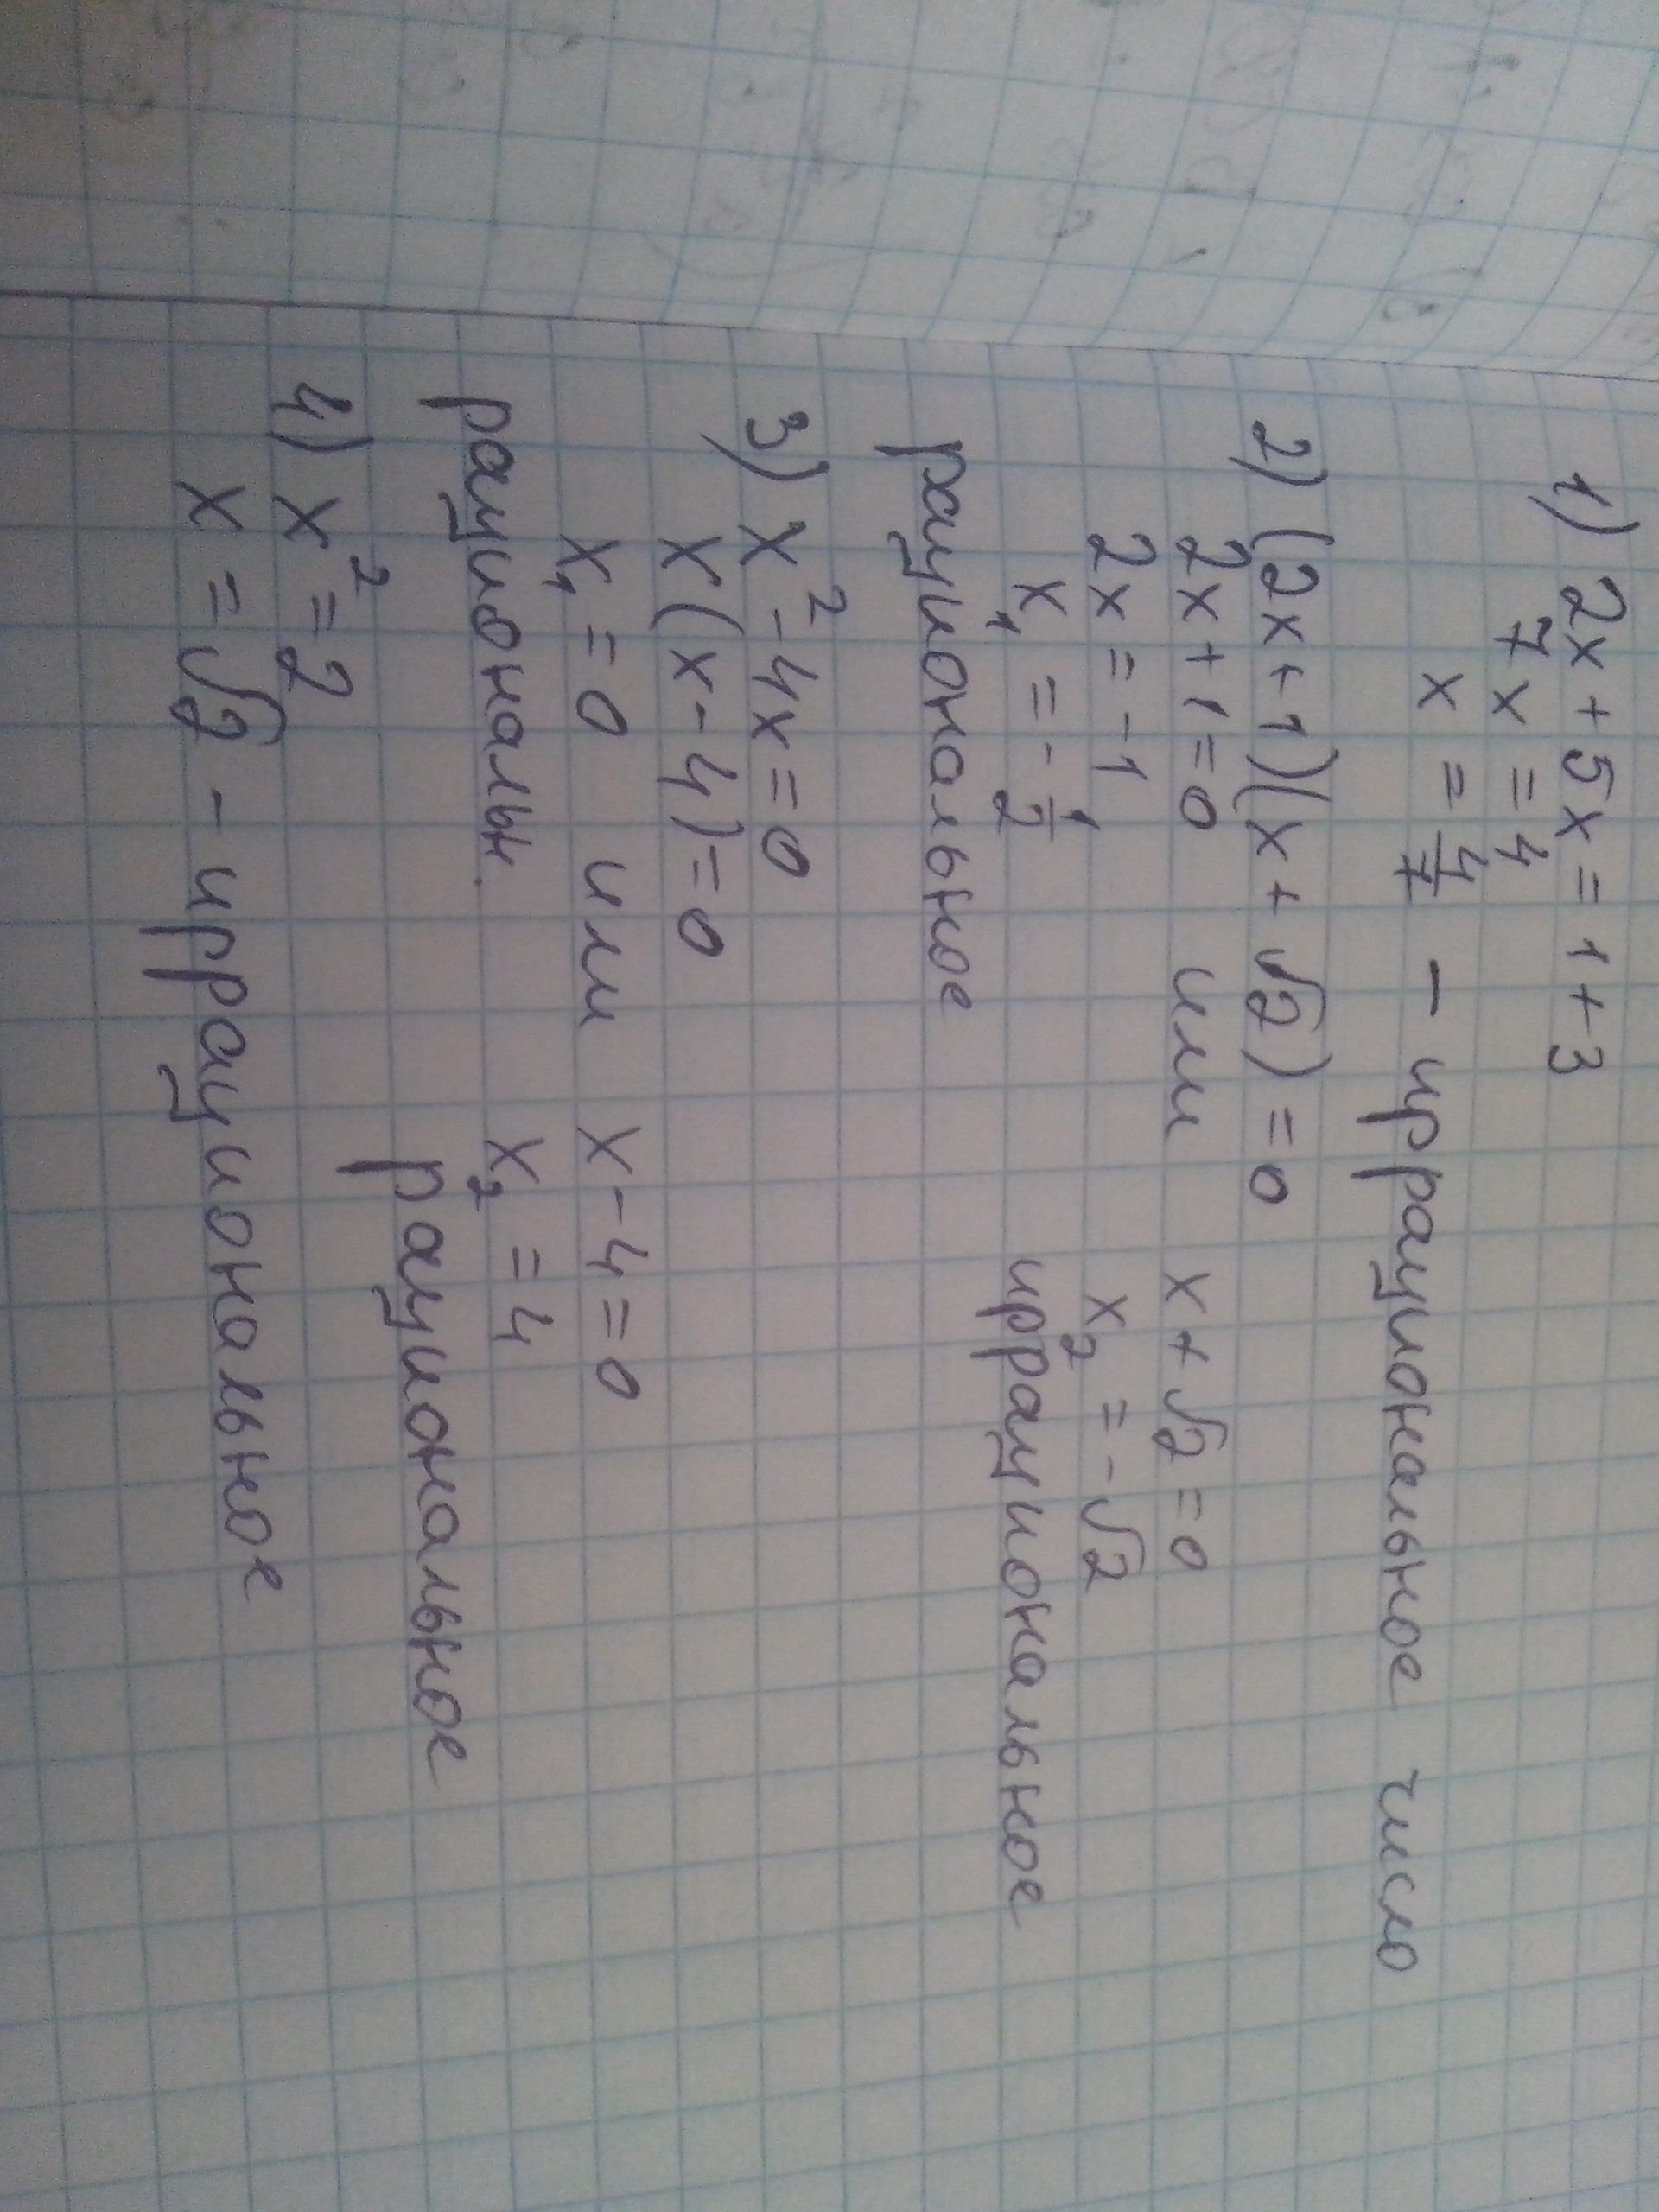 1) 2x + 5x = 1 + 3
7x = 4
x = 4/7 - иррациональное число
2) (2x+1)(x+√2) = 0
2x+1=0 или x+√2=0
2x = -1 x₂ = -√2
x₁ = -1/2 иррациональное
рациональное
3) x²-4x=0
x(x-4)=0
x₁=0 или x-4=0
x₂=4
рациональн. рациональное
4) x²=2
x=√2 - иррациональное